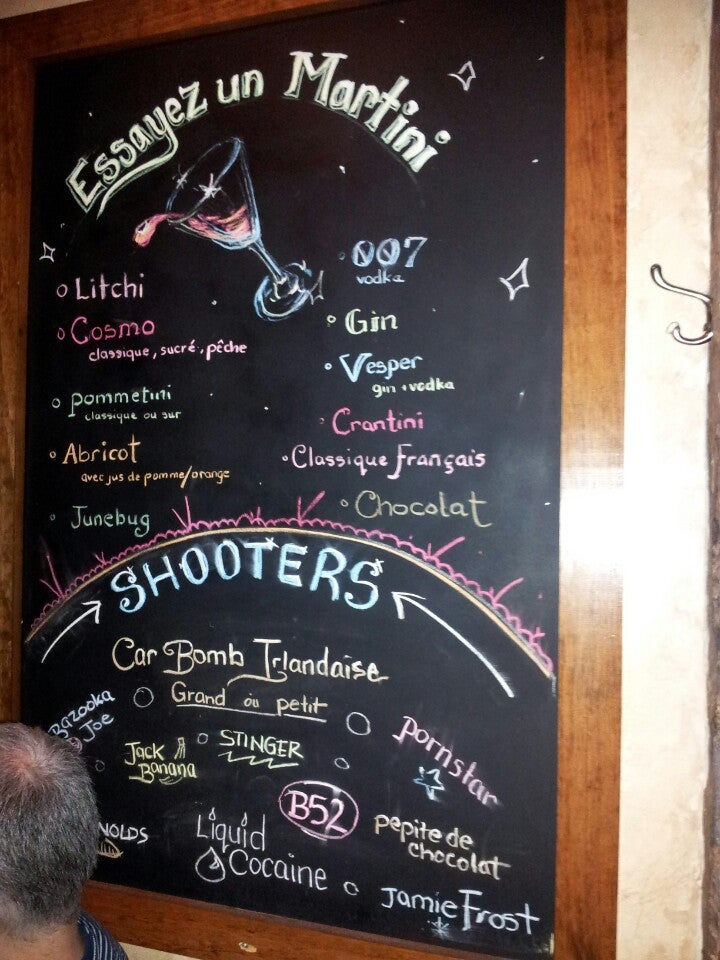 Essayez un Martini
Litchi
Cosmo
classique, sucré, pêche
pommetini
classique ou sur
Abricot
avec jus de pomme/orange
Junebug
007
vodka
Gin
Vesper
gin + vodka
Crantini
Classique français
Chocolat
SHOOTERS
Car Bomb Irlandaise
Grand ou petit
Bazooka
Joe
Jack
Banana
STINGER
Pornstar
B52
NOLDS
Liquid
Cocaine
pepite de
chocolat
Jamie Frost